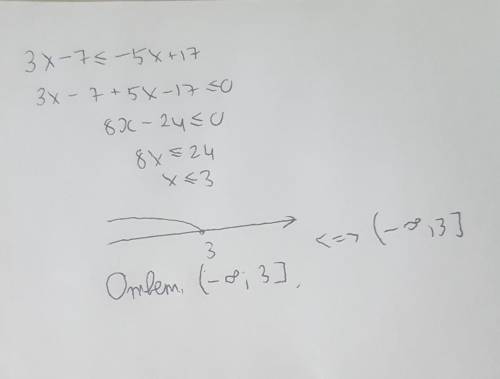 3x-7≤-5x+17
3x-7+5x-17≤0
8x-24≤0
8x≤24
x≤3
3
<=> (-∞,3]
Ответ. (-∞; 3].